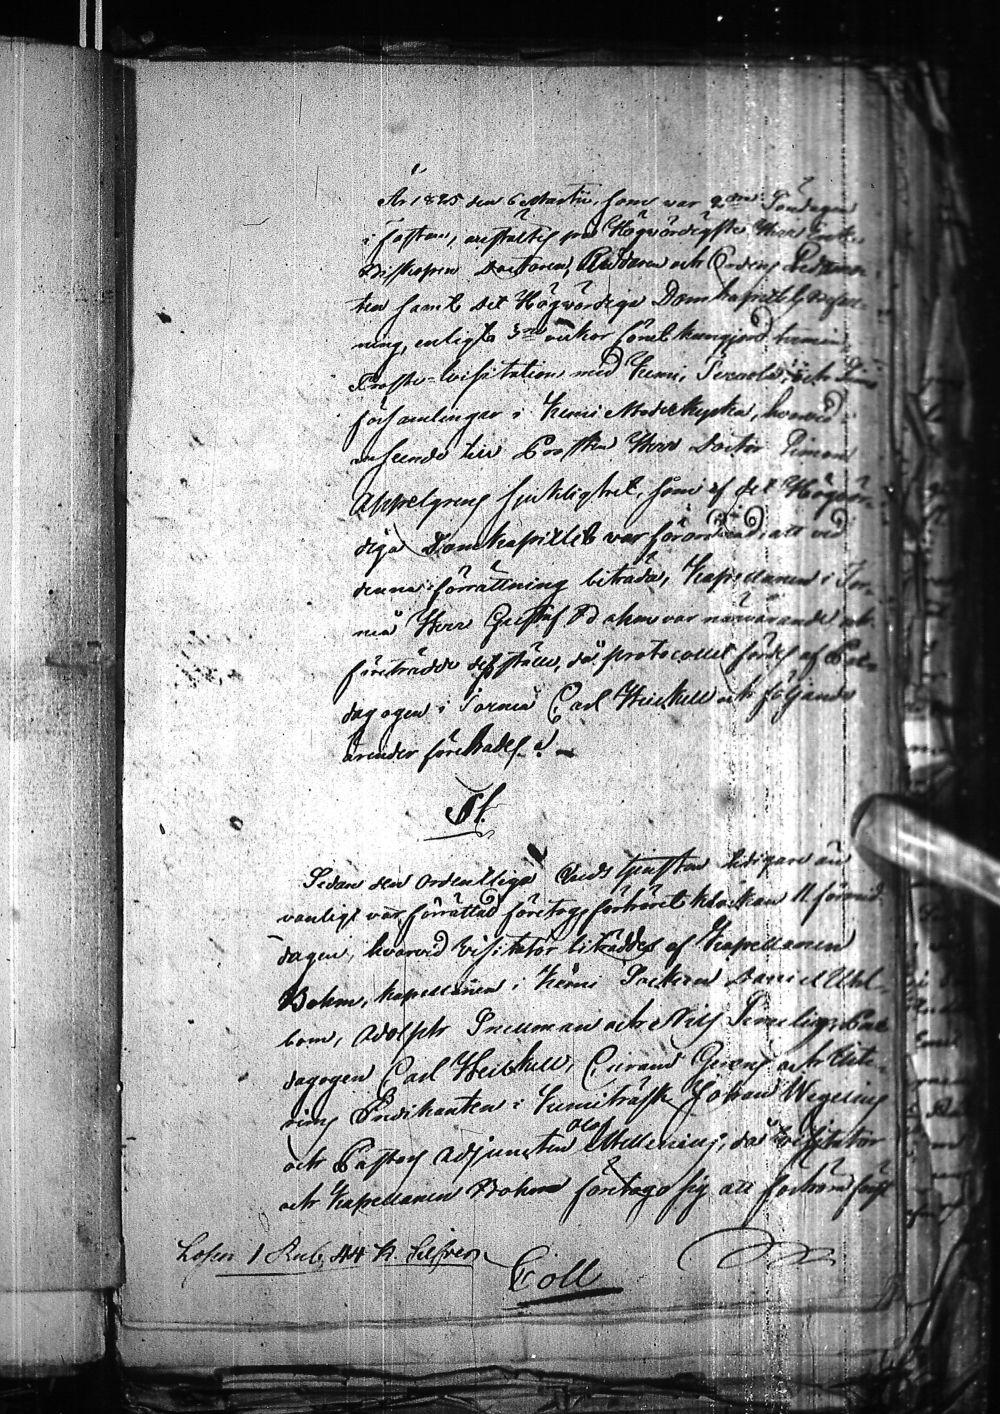 År 1825 den 6 Martii, som var 2dra Söndagen
i fastan, anstältes på Högvördigste Herr
Biskopen Doctoren, Riddaren och Ordens Ledamo-
ten samt det Högvördiga Domkapitlets
ning, enligt 3ne veckor förut kungjord termin,
Prosts-Visitation med Kemi, Tervola, och Simo
församlingar i Kemi Moderkyrka, hvarvid i
anseende till Prosten Herr Doctor Simon
Appelgrens sjuklighet, som af det Högvör-
diga Domkapitlet var förordnad, att vid
denna förrättning biträda, Kapellanen i Tor-
neå Herr Gustaf Bohm var närvarande och
företrädde dess ställe, då protocollet fördes af Pæ-
dagogen i Torneå Carl Heickell och följande
ärender företrades.
§ 1.
Sedan den ordentliga Gudstjensten tidigare än
vanligt var förrättad företogs förhöret klockan 11 förmid-
dagen, hvarvid Visitator biträddes af Kapellanen
Bohm, kapellanen i Kemi Socken Daniel Uhl-
bom, Adolph Snellman och Nils
dagogen Carl Heickell,
Predikanten i Kemiträsk Johan Wegelius
och Pastors Adjuncten Olof Mellenius, då Visitator
och Kapellanen Bohm företogo sig att förhöra först
Lösen 1 Rub. 44 k. Silfver
Coll